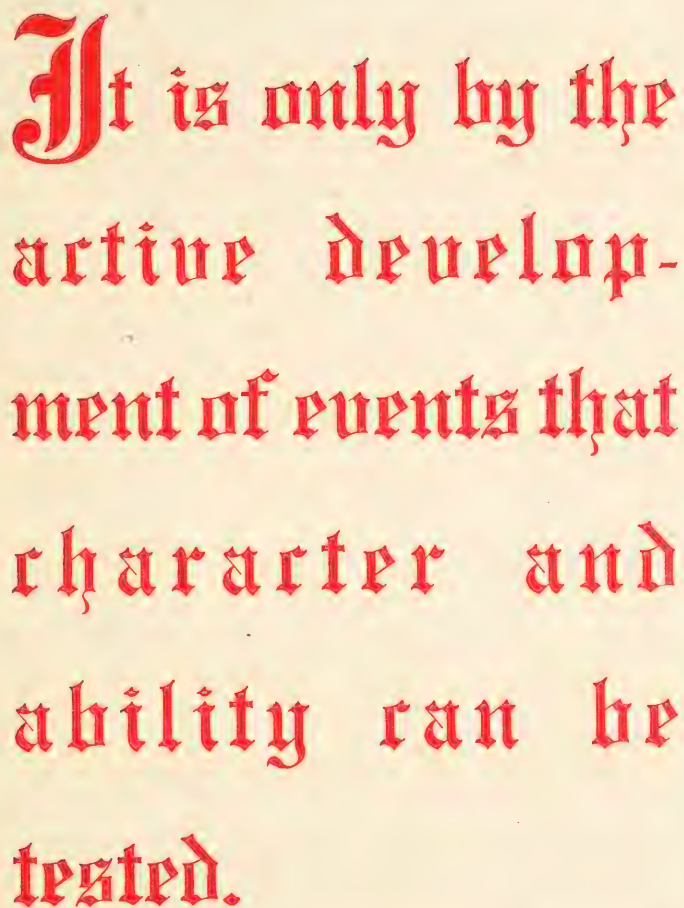 It is only by the
active develop-
ment of events that
character and
ability can be
tested.